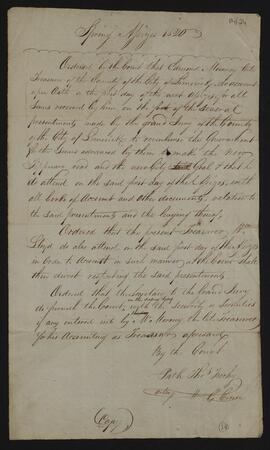 Spring Assizes 1820
Ordered by the Court that Edmond Morony late
Treasurer of the County of the City of Limerick do account
upon Oath on the first day of the next Assizes for all
Sums received by him on the foot of the several
presentments made by the Grand Jury of the County
of the City of Limerick to reimburse the Government
for the Sums advanced by them to make the New
Tipperary road and the new City Gaol & that he
do attend on the said first day of the Assizes, with
all books of Account and other documents, relative to
the said presentments and the levying thereof,
Ordered that the present Treasurer, Wm
Lloyd do also attend on the said first day of the Assizes
in Order to Account in such manner, as the Court shall
then direct respecting the said presentments
Ordered that the Secretary to the Grand Jury
do furnish the Court, with the Security or Securities
if any entered into by Mr Morony the late Treasurer
for his Accounting as Treasurer aforesaid
By the Court
Copy